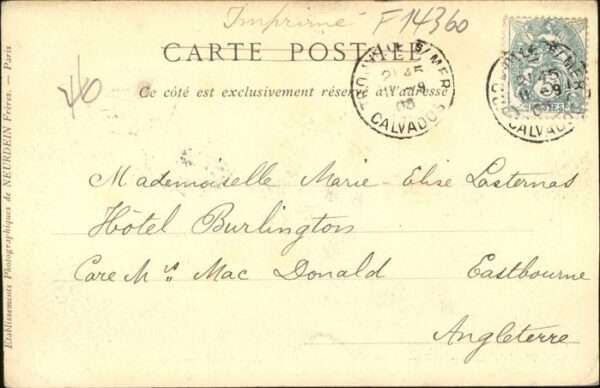 Imprimé
F14360
CARTE POSTALE
Ce côté est exclusivement réservé à l'adresse
TROUVILLE S/MER
CALVADOS
Mademoiselle Marie-Elise Lasternas
Hôtel Burlington
Care Mrs Mac Donald Eastbourne
Angleterre
Etablissements Photographiques de NEURDEIN Frères. — Paris